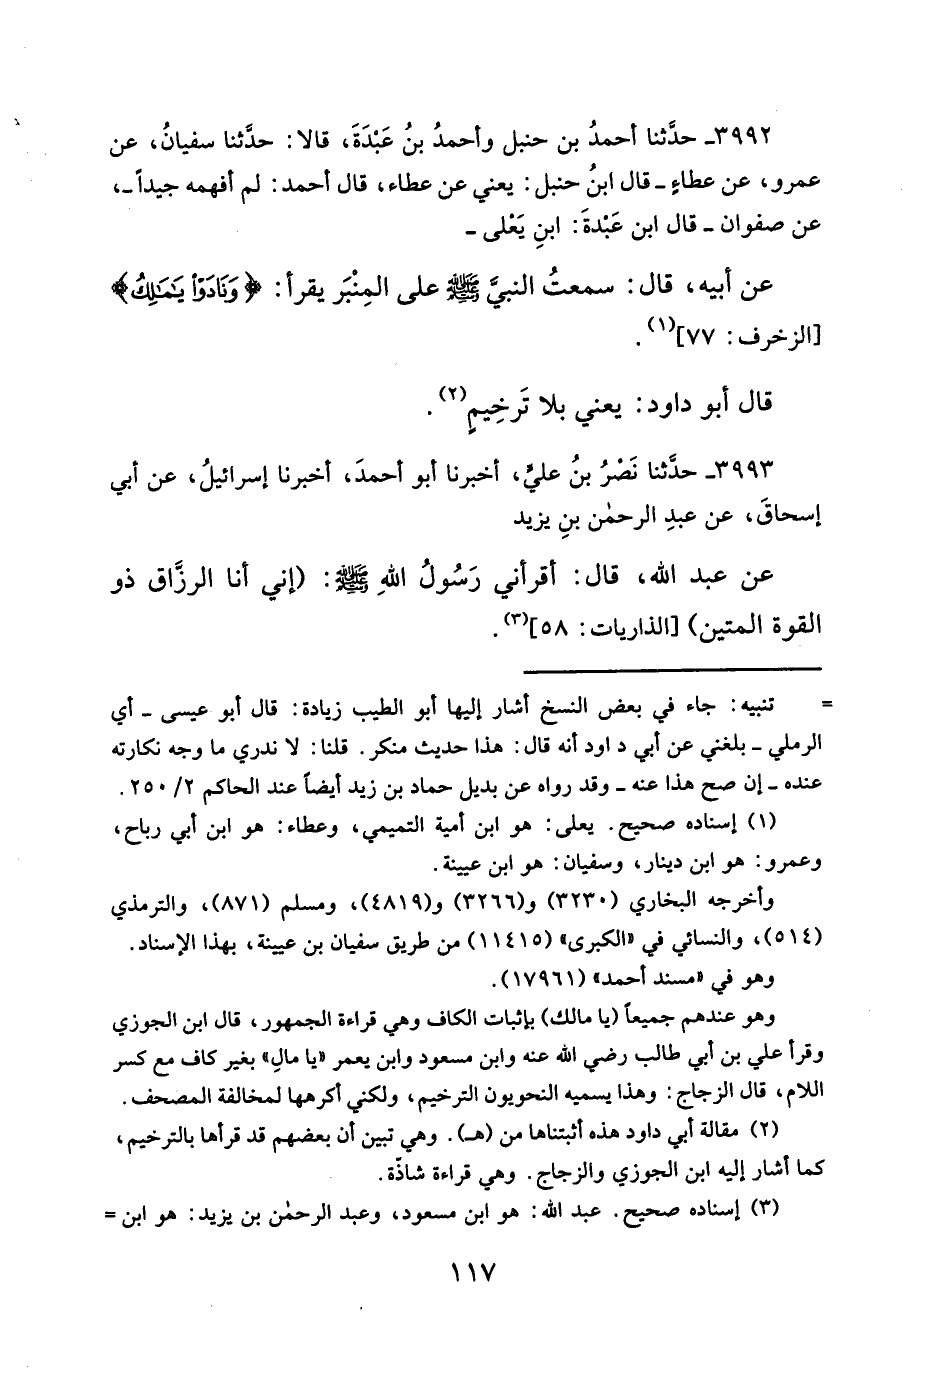 ٣٩٩٢ـ حدَّثنا أحمدُ بن حنبل وأحمدُ بنُ عَبْدَةَ، قالا: حدَّثنا سفيانُ، عن
عمرو، عن عطاءٍ ـ قال ابنُ حنبل: يعني عن عطاء، قال أحمد: لم أفهمه جيداً ـ،
عن صفوان ـ قال ابن عَبْدةَ: ابنِ يَعْلى ـ
عن أبيه، قال: سمعتُ النبيَّ ﷺ على المِنْبَر يقرأ: ﴿وَنَادَوْاْ يَـٰمَـٰلِكُ﴾
[الزخرف: ٧٧](١).
قال أبو داود: يعني بلا تَرخِيمٍ(٢).
٣٩٩٣ـ حدَّثنا نَصْرُ بنُ عليٍّ، أخبرنا أبو أحمدَ، أخبرنا إسرائيلُ، عن أبي
إسحاقَ، عن عبدِ الرحمٰن بنِ يزيد
عن عبد الله، قال: أقرأني رَسُولُ اللهِ ﷺ: (إني أنا الرزَّاق ذو
القوة المتين) [الذاريات: ٥٨](٣).
= تنبيه: جاء في بعض النسخ أشار إليها أبو الطيب زيادة: قال أبو عيسى ـ أي
الرملي ـ بلغني عن أبي د اود أنه قال: هذا حديث منكر. قلنا: لا ندري ما وجه نكارته
عنده ـ إن صح هذا عنه ـ وقد رواه عن بديل حماد بن زيد أيضاً عند الحاكم ٢/ ٢٥٠.
(١) إسناده صحيح. يعلى: هو ابن أمية التميمي، وعطاء: هو ابن أبي رباح،
وعمرو: هو ابن دينار، وسفيان: هو ابن عيينة.
وأخرجه البخاري (٣٢٣٠) و(٣٢٦٦) و(٤٨١٩)، ومسلم (٨٧١)، والترمذي
(٥١٤)، والنسائي في «الكبرى» (١١٤١٥) من طريق سفيان بن عيينة، بهذا الإسناد.
وهو في «مسند أحمد» (١٧٩٦١).
وهو عندهم جميعاً (يا مالك) بإثبات الكاف وهي قراءة الجمهور، قال ابن الجوزي
وقرأ علي بن أبي طالب رضي الله عنه وابن مسعود وابن يعمر «يا مالِ» بغير كاف مع كسر
اللام، قال الزجاج: وهذا يسميه النحويون الترخيم، ولكني أكرهها لمخالفة المصحف.
(٢) مقالة أبي داود هذه أثبتناها من (هـ). وهي تبين أن بعضهم قد قرأها بالترخيم،
كما أشار إليه ابن الجوزي والزجاج. وهي قراءة شاذّة.
(٣) إسناده صحيح. عبد الله: هو ابن مسعود، وعبد الرحمٰن بن يزيد: هو ابن =
١١٧